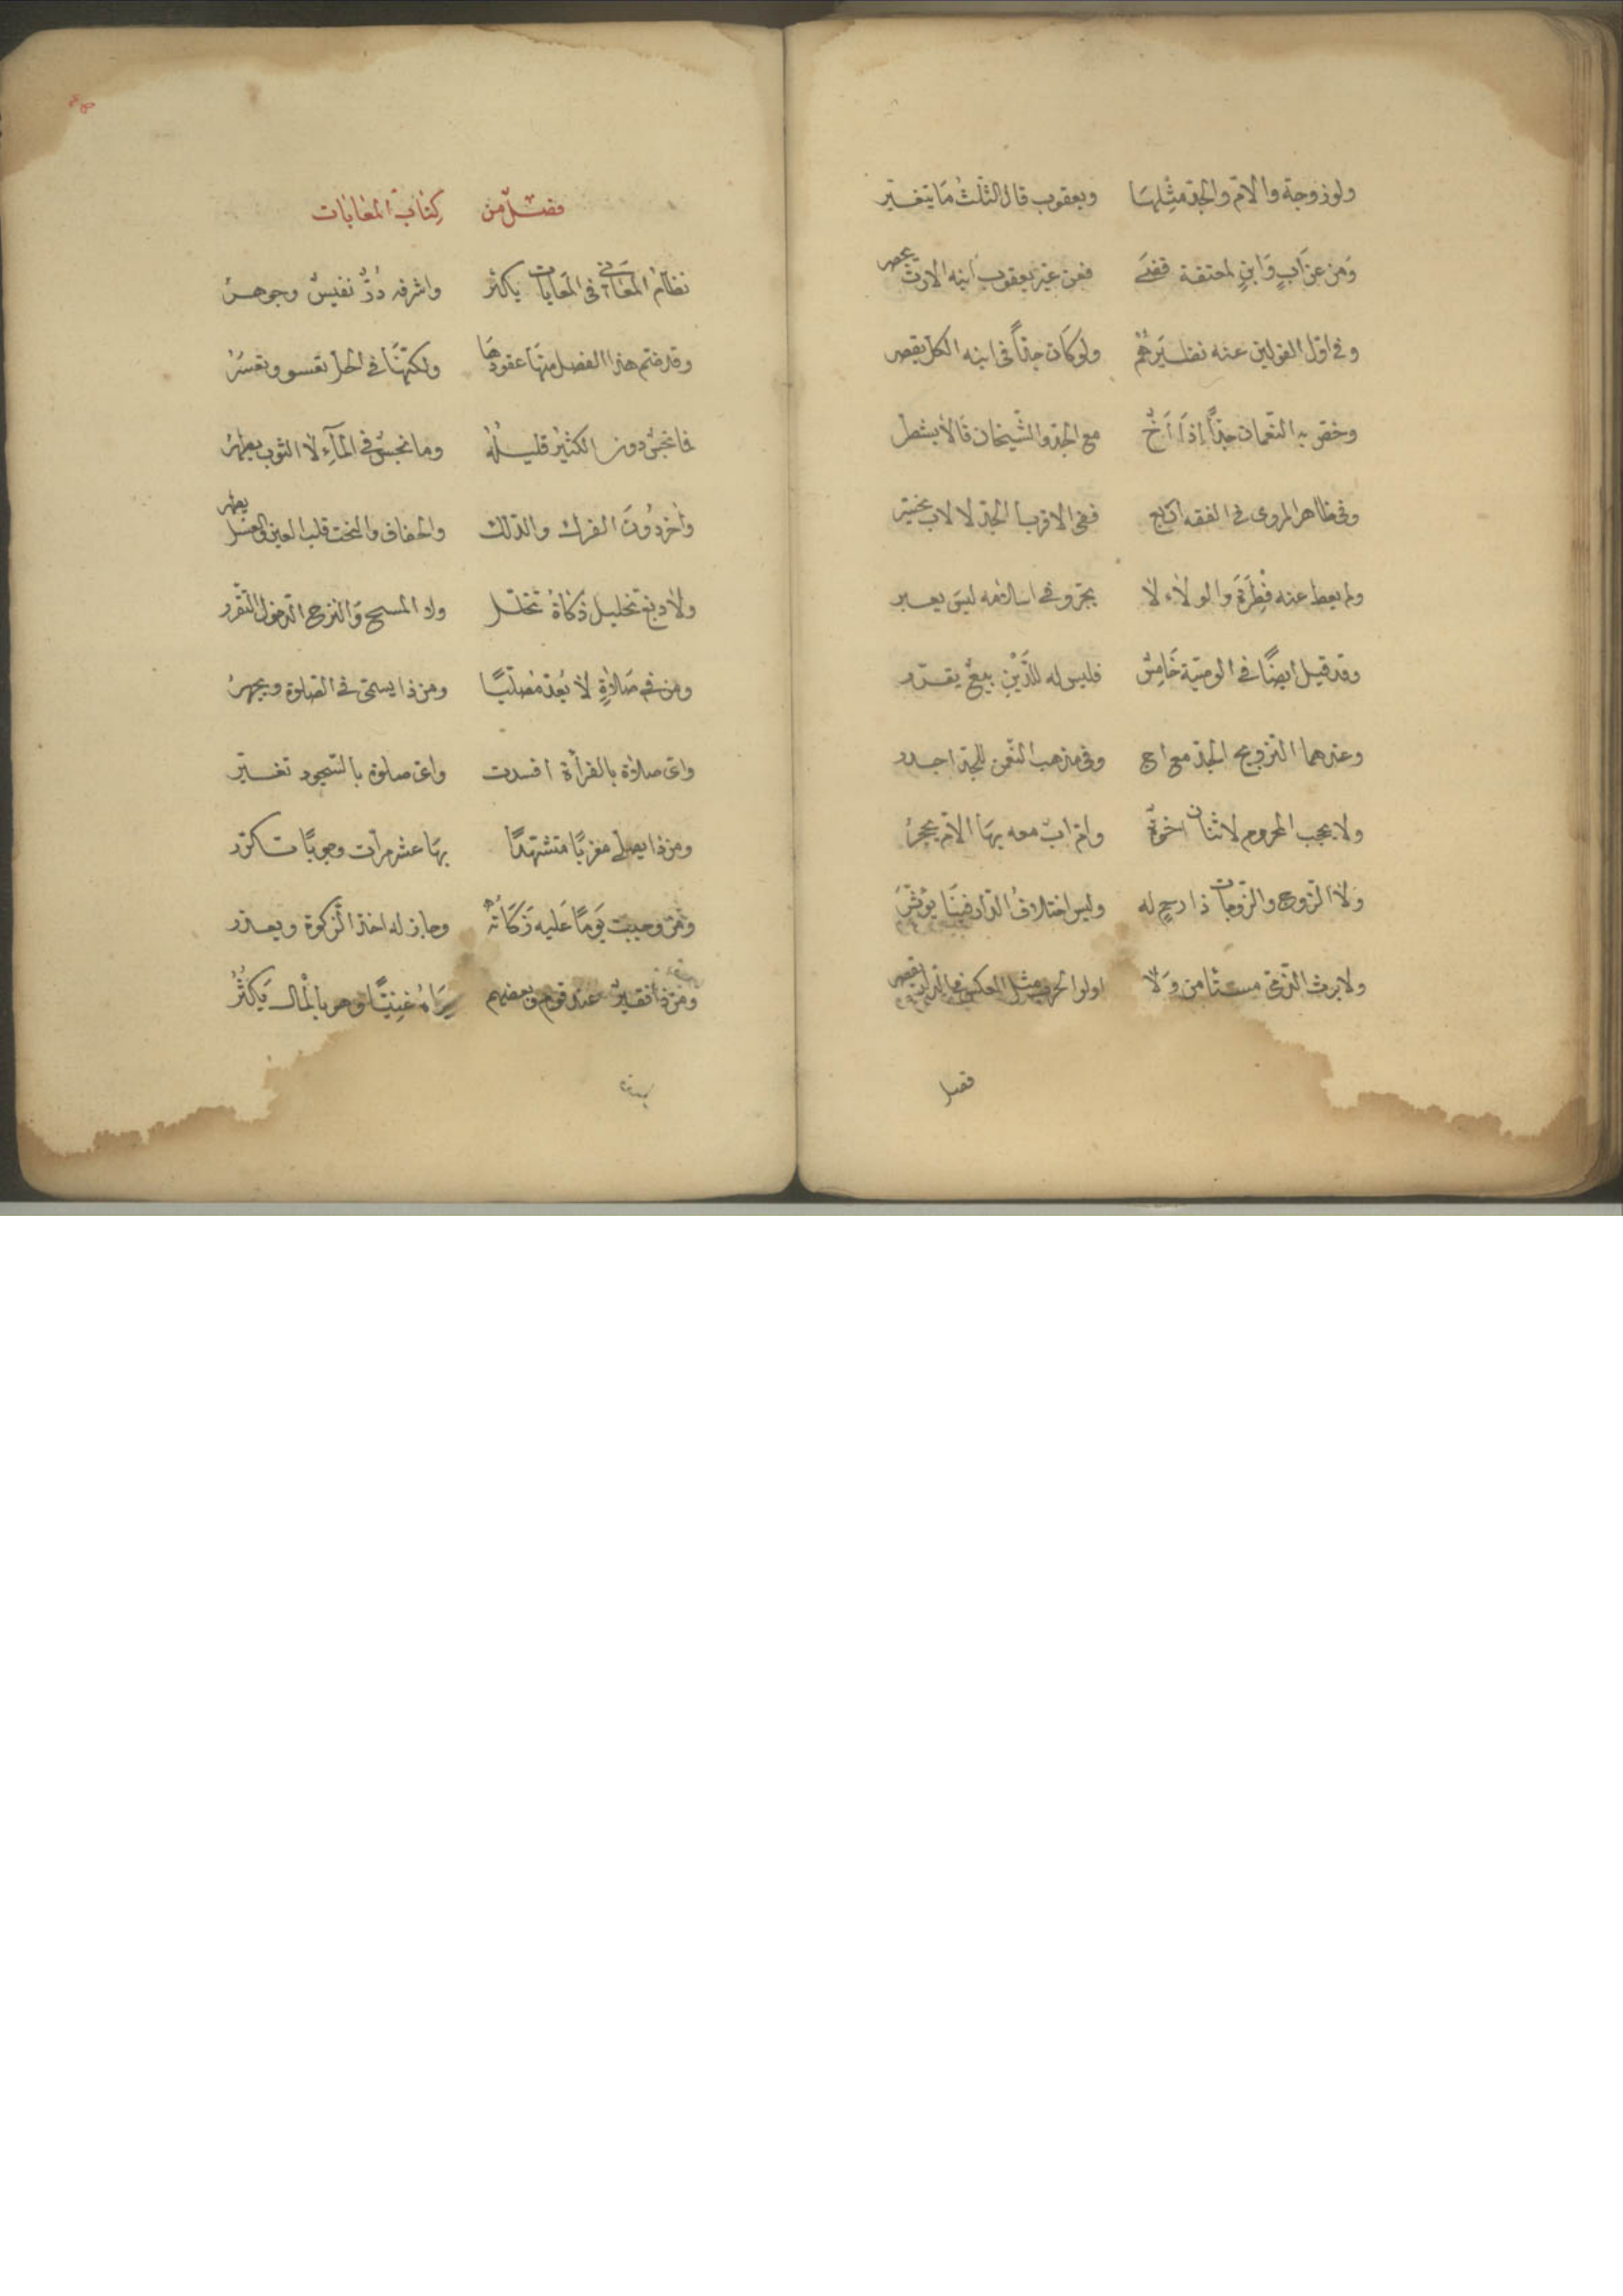 ولو زوجة والام والجد مثلها وبعقوب قال الثلث ما يتغير
ومن عن اب وابن لمعتقة قضى فعن غير يعقوب ابنه الارث يحصر
وفي اول القولين عنه نظيرهم ولو كان جدًّا في ابنه الكل يقصر
وخص به النعمان جدًّا إذا أخ مع الجد والشيخان قالا يشطر
وفي ظاهر المروى في الفقه اربع ففي الاقربا الجد لا لاب يخير
ولم يعط عنه فطرة والولاء لا يجر وفي اسلامه ليس يعبر
وقد قيل ايضًا في الوصية خامس فليس له للدين بيع يقرر
وعندهما التزويج الجد مع اخ وفي مذهب النعمن للجد اجدر
ولا يحجب المحروم لاثنان اخوة وام اب معه بها الام يحجر
ولا الزوج والزوجات ذا رحم له وليس اختلاف الدار فينا يؤثر
ولا يرث الذمي مستأمن ولا اولوا الحرب مثل العكس
فصل
فصل من كتاب المعايات
نظام المعاني في المعايات يكثر واشرفه در نفيس وجوهر
وقد ضم هذا الفصل منها عقودها ولكنها في الحل تقسو وتعسر
فما نجس دون الكثير قليله وما نجس في الماء لا الثوب يطهر
وأخر دون الفرك والدلك والجفاف والنحت قلب العين الغسل يطهر
ولا دبغ تخليل ذكاة تخلل ولا المسح والنزح الدخول التقور
ومن في صلاة لا يعد مصليًا ومن ذا يسمى في الصلوة ويجهر
واى صلاة بالقرأة افسدت واى صلوة بالسجود تغير
ومن ذا يصلي مغربًا متشهدًا بها عشر مرات وجوبًا تكرر
ومن وجبت يومًا عليه زكاته وجاز له اخذ الزكوة ويعذر
ومن ذا فقير عند قوم وبعضهم يراه غنيًا وهو بالمال يكثر